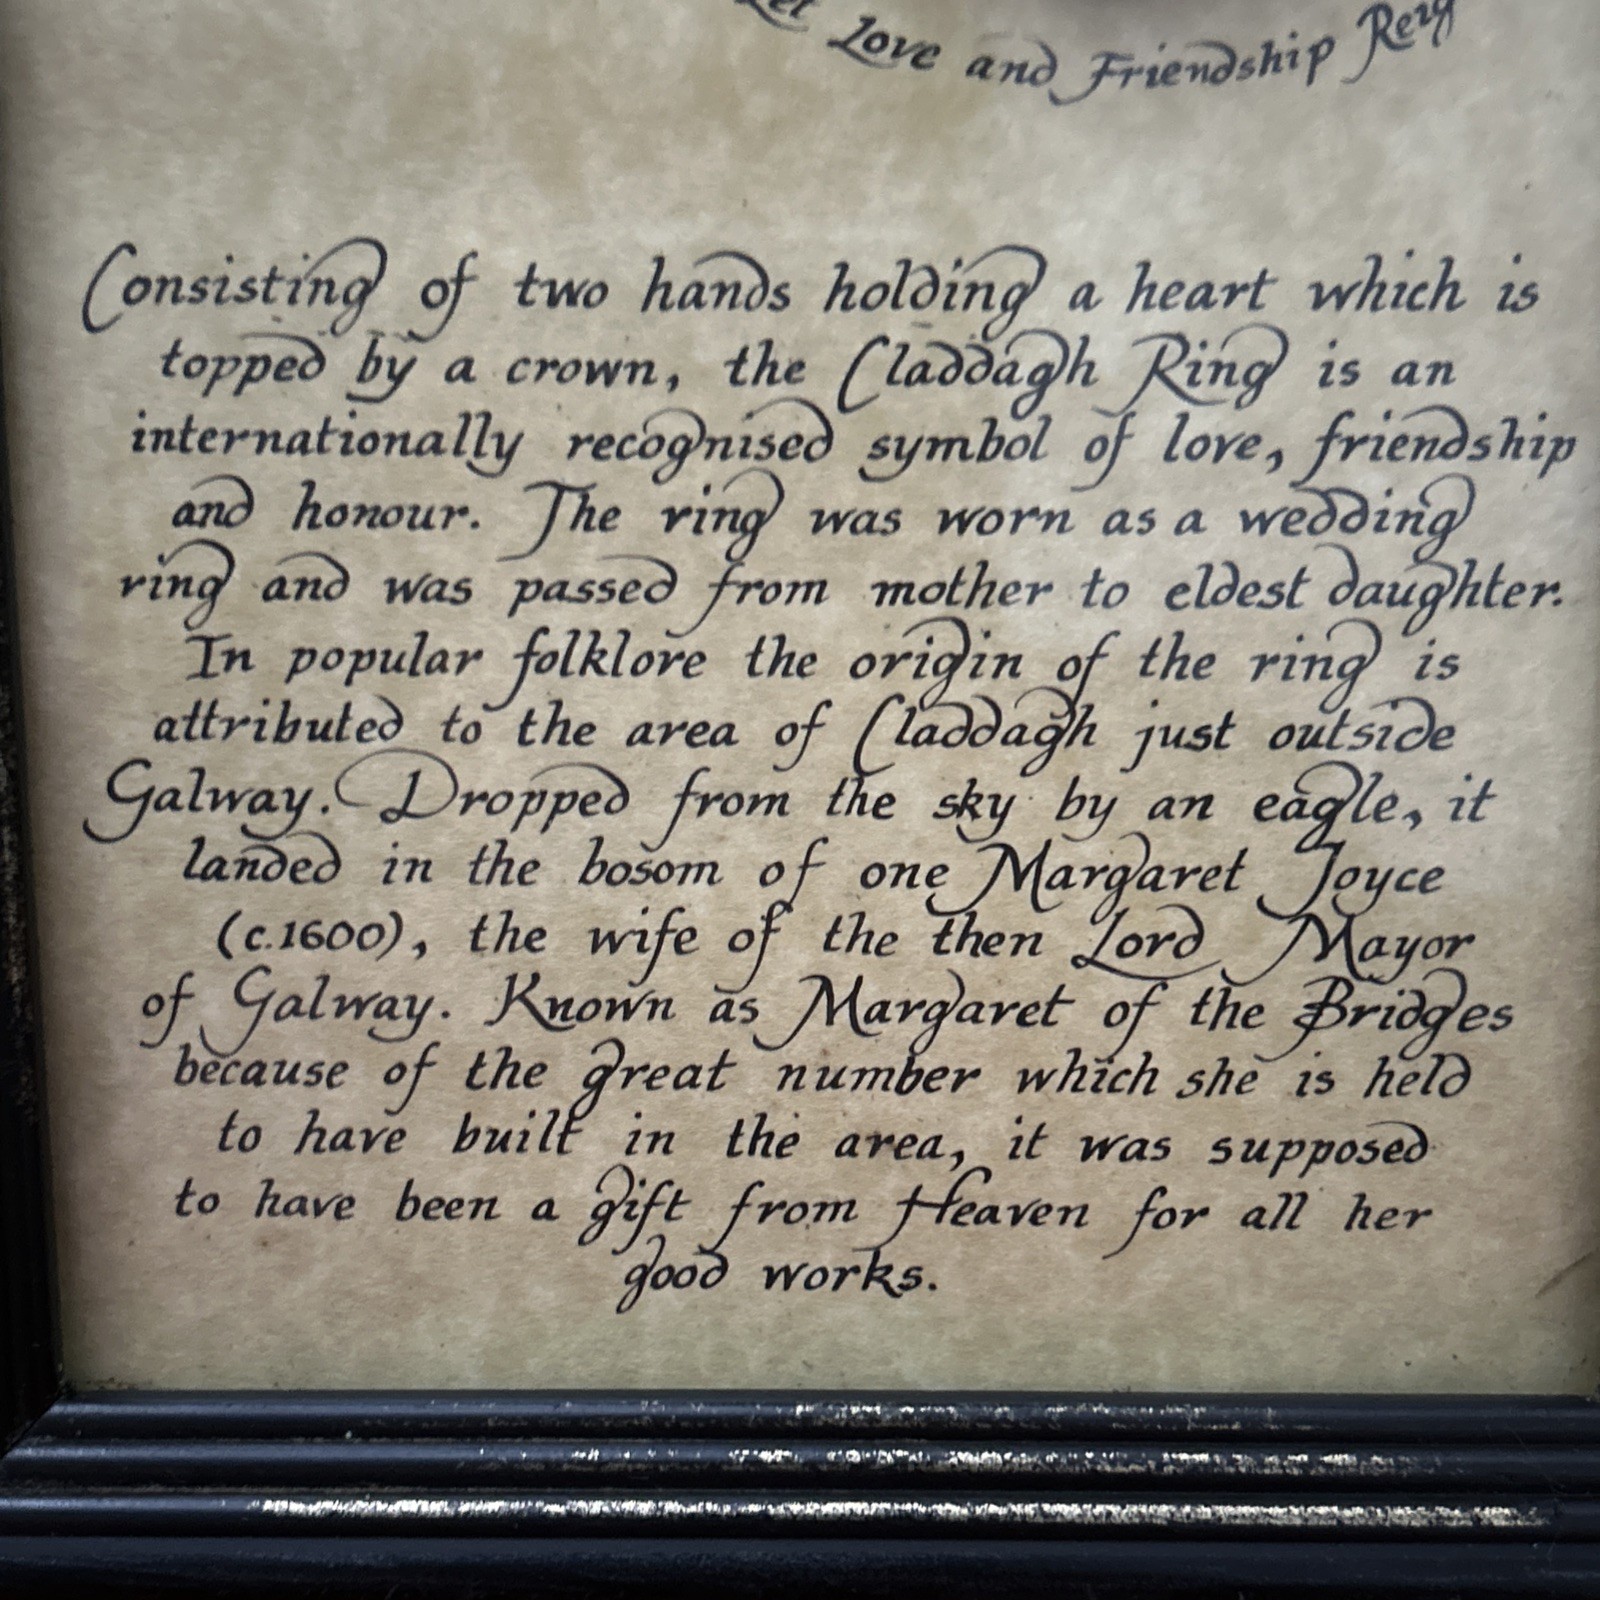 Let Love and Friendship Reign
Consisting of two hands holding a heart which is
topped by a crown, the Claddagh Ring is an
internationally recognised symbol of love, friendship
and honour. The ring was worn as a wedding
ring and was passed from mother to eldest daughter.
In popular folklore the origin of the ring is
attributed to the area of Claddagh just outside
Galway. Dropped from the sky by an eagle, it
landed in the bosom of one Margaret Joyce
(c.1600), the wife of the then Lord Mayor
of Galway. Known as Margaret of the Bridges
because of the great number which she is held
to have built in the area, it was supposed
to have been a gift from Heaven for all her
good works.